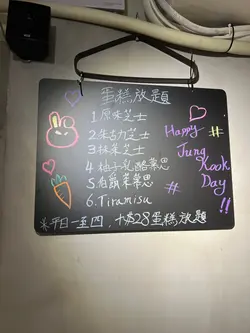 蛋糕放題
1.原味芝士
2.朱古力芝士
3.抹茶芝士
4.柚子乳酪慕思
5.伯爵茶慕思
6.Tiramisu
※平日一至四,+$28蛋糕放題
Happy
#
Jung
Kook
# Day !!